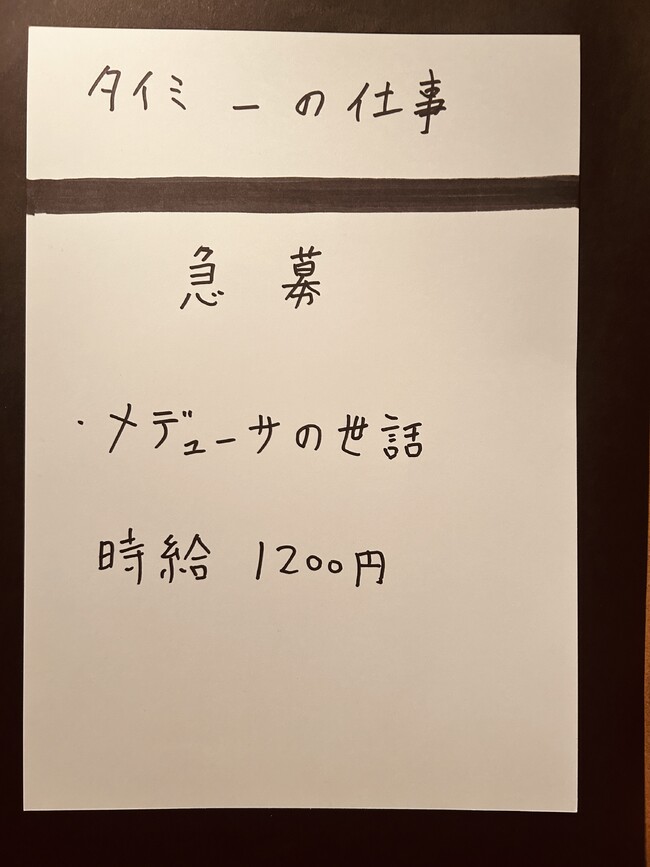 タイミーの仕事
急募
・メデューサの世話
時給 1200円